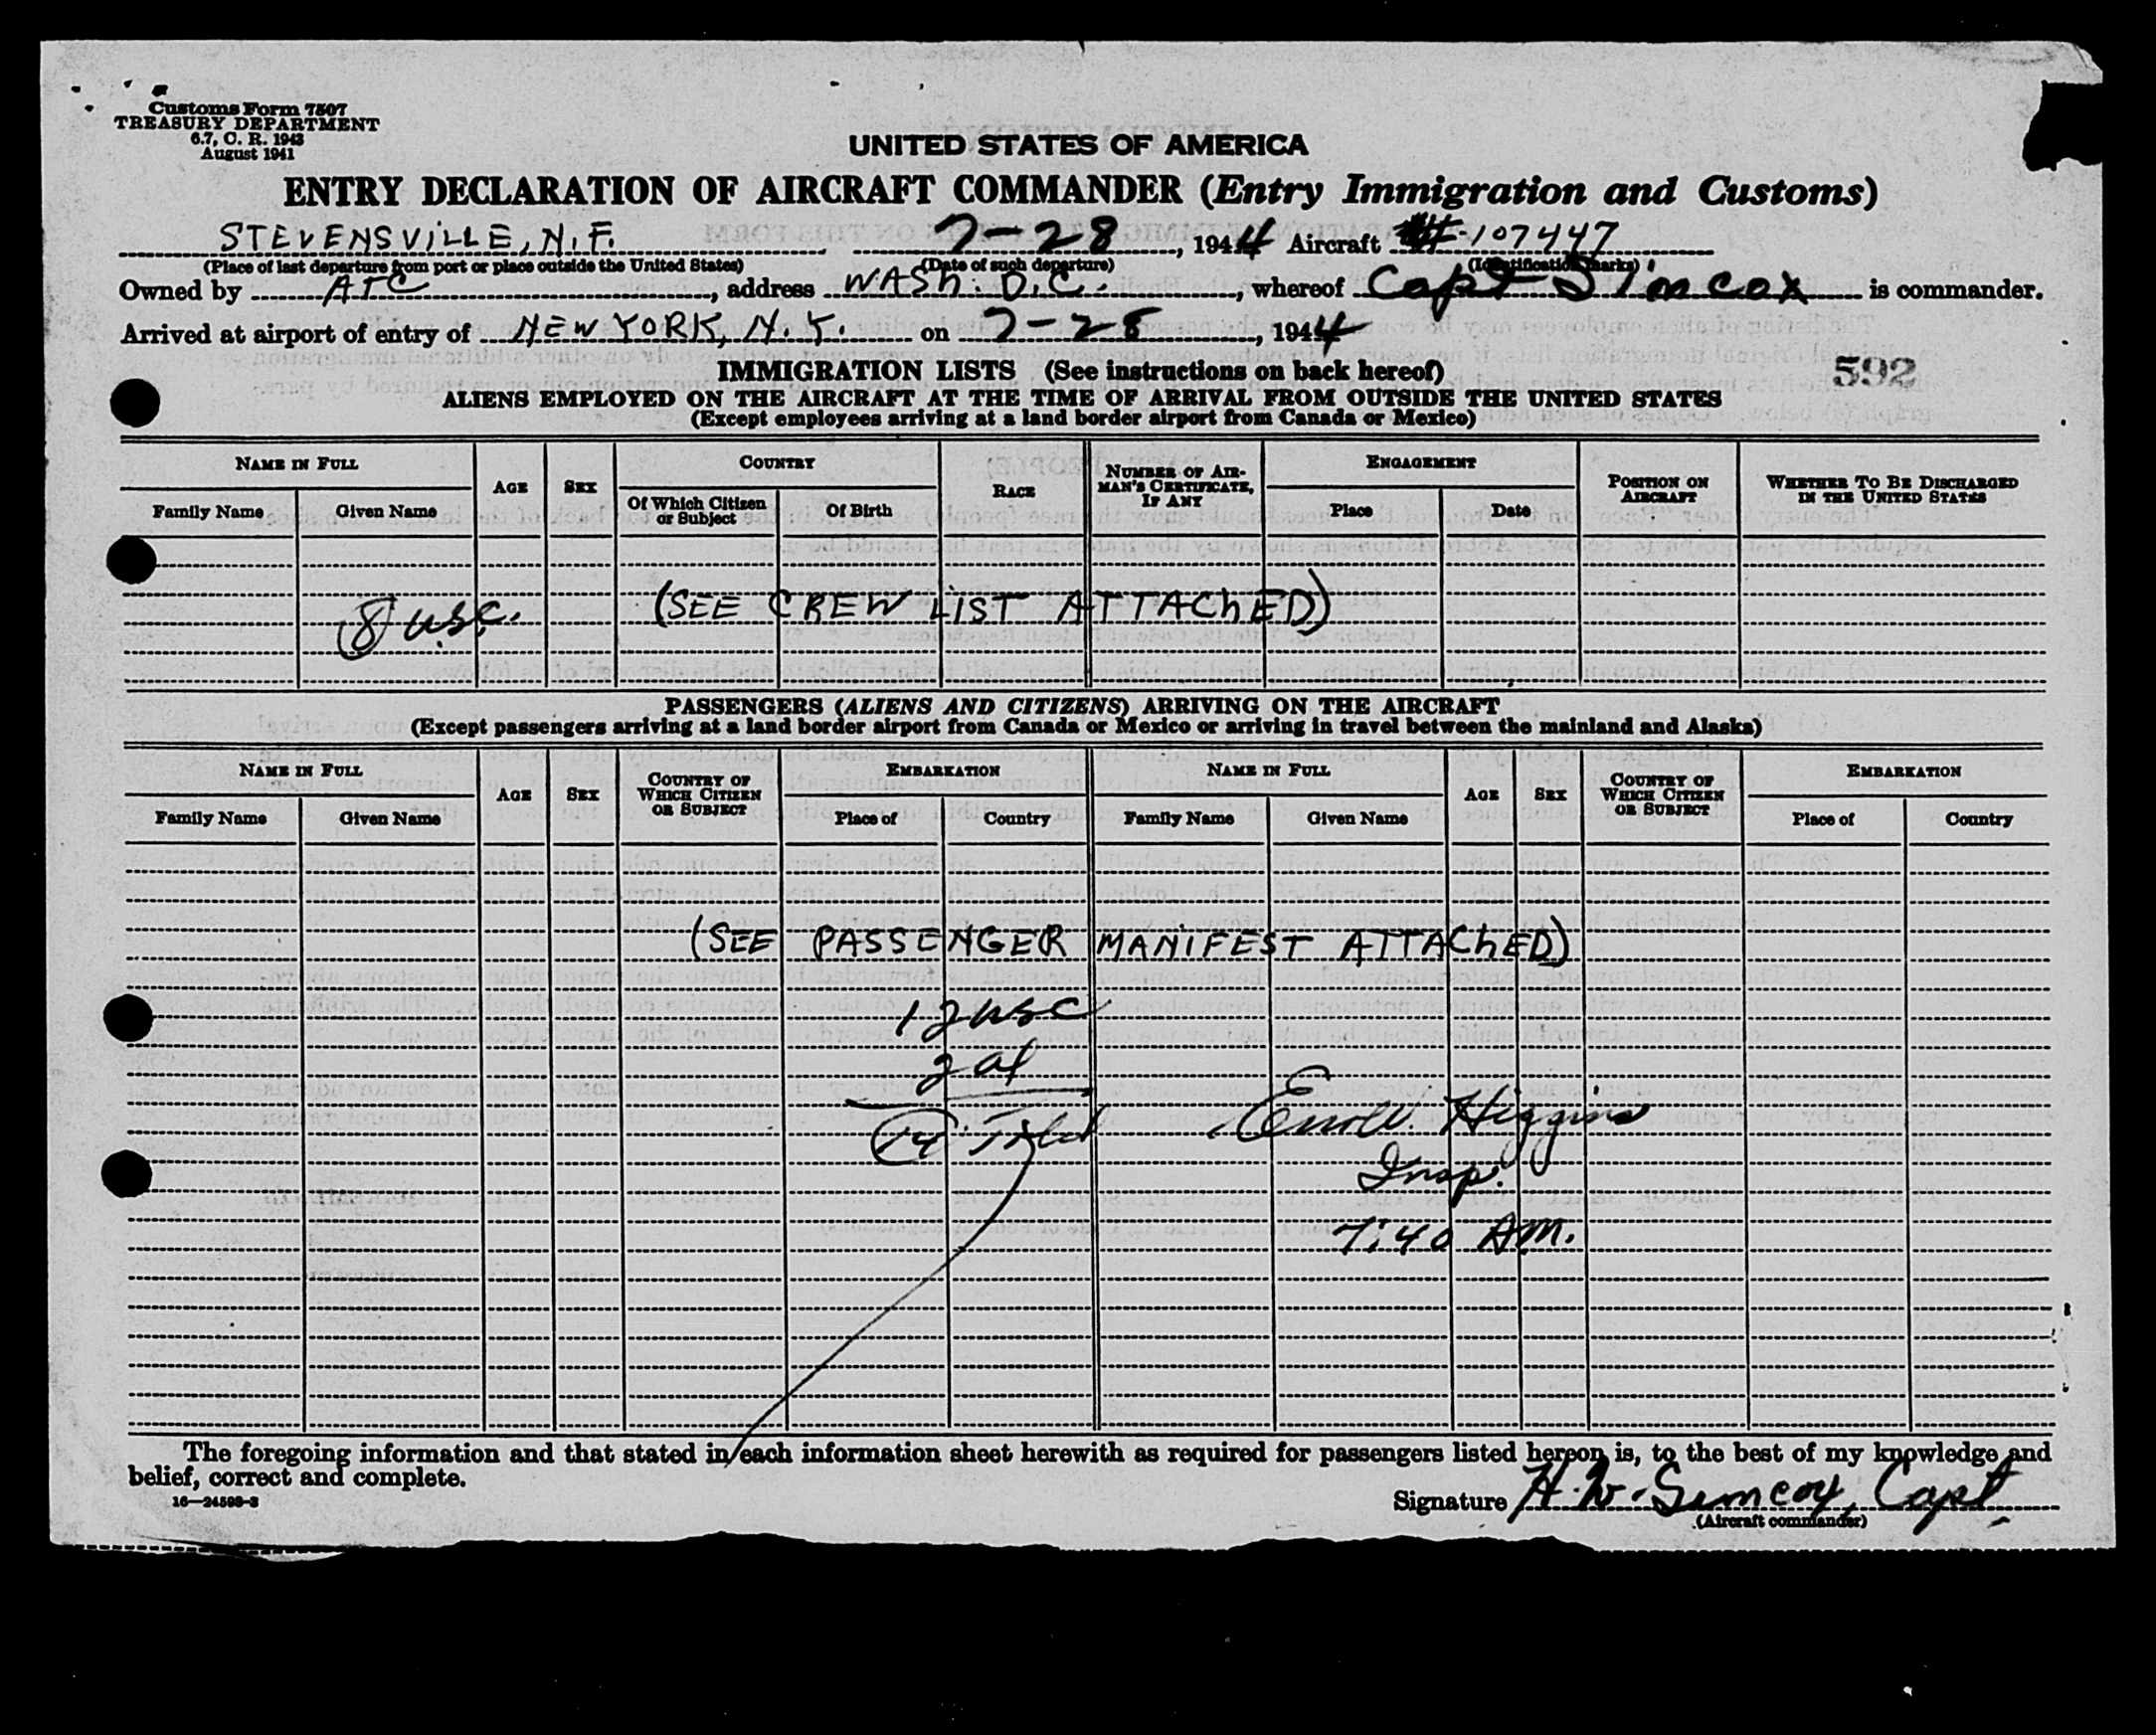 Customs Form 7507
TREASURY DEPARTMENT
6.7, C. R. 1943
August 1941
UNITED STATES OF AMERICA
ENTRY DECLARATION OF AIRCRAFT COMMANDER (Entry Immigration and Customs)
STEVENSVILLE, N.F. 7-28, 1944 Aircraft 107447
(Place of last departure from port or place outside the United States) (Date of such departure) (Identification marks)
Owned by ATC, address WASH. D.C., whereof Capt Simcox is commander.
Arrived at airport of entry of NEW YORK, N.Y. on 7-28, 1944
592
IMMIGRATION LISTS (See instructions on back hereof)
ALIENS EMPLOYED ON THE AIRCRAFT AT THE TIME OF ARRIVAL FROM OUTSIDE THE UNITED STATES
(Except employees arriving at a land border airport from Canada or Mexico)
NAME IN FULL AGE SEX COUNTRY RACE NUMBER OF AIRMAN'S CERTIFICATE, IF ANY ENGAGEMENT POSITION ON AIRCRAFT WHETHER TO BE DISCHARGED IN THE UNITED STATES
Family Name Given Name Of Which Citizen or Subject Of Birth Place Date
8 usc. (SEE CREW LIST ATTAChED)
PASSENGERS (ALIENS AND CITIZENS) ARRIVING ON THE AIRCRAFT
(Except passengers arriving at a land border airport from Canada or Mexico or arriving in travel between the mainland and Alaska)
NAME IN FULL AGE SEX COUNTRY OF WHICH CITIZEN OR SUBJECT EMBARKATION NAME IN FULL AGE SEX COUNTRY OF WHICH CITIZEN OR SUBJECT EMBARKATION
Family Name Given Name Place of Country Family Name Given Name Place of Country
(SEE PASSENGER MANIFEST ATTAChED)
12 usc
2 al
14 Total Higgins
Insp.
7:40 A.M.
The foregoing information and that stated in each information sheet herewith as required for passengers listed hereon is, to the best of my knowledge and
belief, correct and complete.
16—24598-3
Signature H.W. Simcox, Capt
(Aircraft commander)